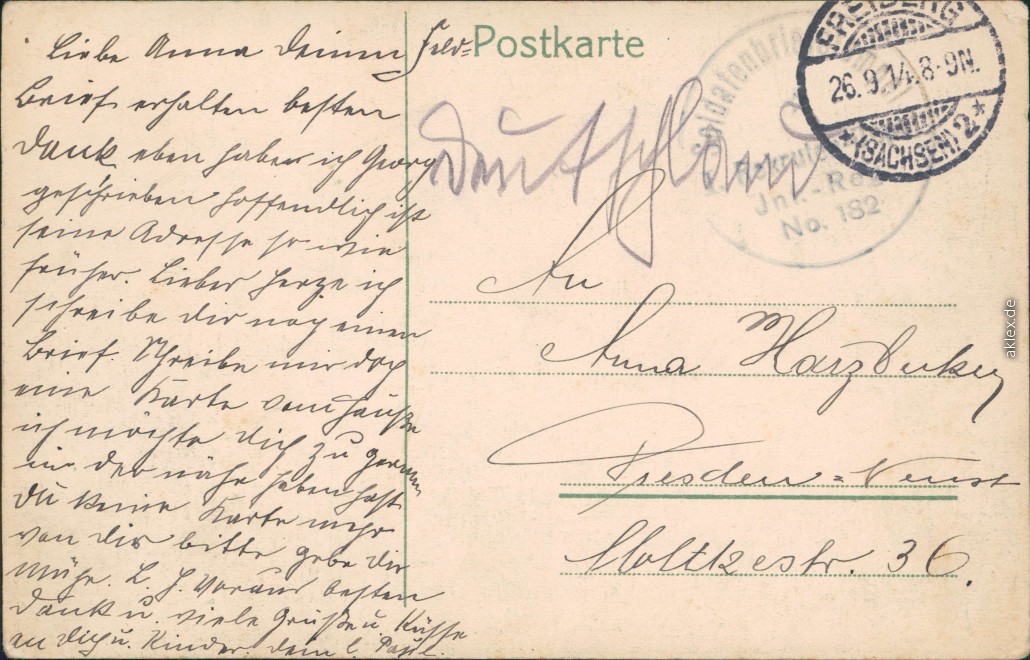 Liebe Anna Deinen
Brief erhalten besten
Dank eben habe ich Georg
geschrieben hoffendlich ist
seine Adresse so wie
früher. Liebes Herze ich
schreibe dir noch einen
Brief. Schreibe mir doch
eine Karte vom Hause
ich möchte dich zu gerne
in der nähe haben hast
du keine Karte mehr
von dir bitte gebe dir
Mühe. L. H. voraus besten
Dank u. viele Grüße u Küsse
an dich u. Kinder dein l. Paul.
Feld=Postkarte
Deutschland
Soldatenbrief
Inf.-Reg.
No. 182
FREIBERG
26.9.14. 8-9N.
*(SACHSEN) 2*
An
Anna Harzbecker
Dresden=Neust
Moltkestr. 36.
aklex.de